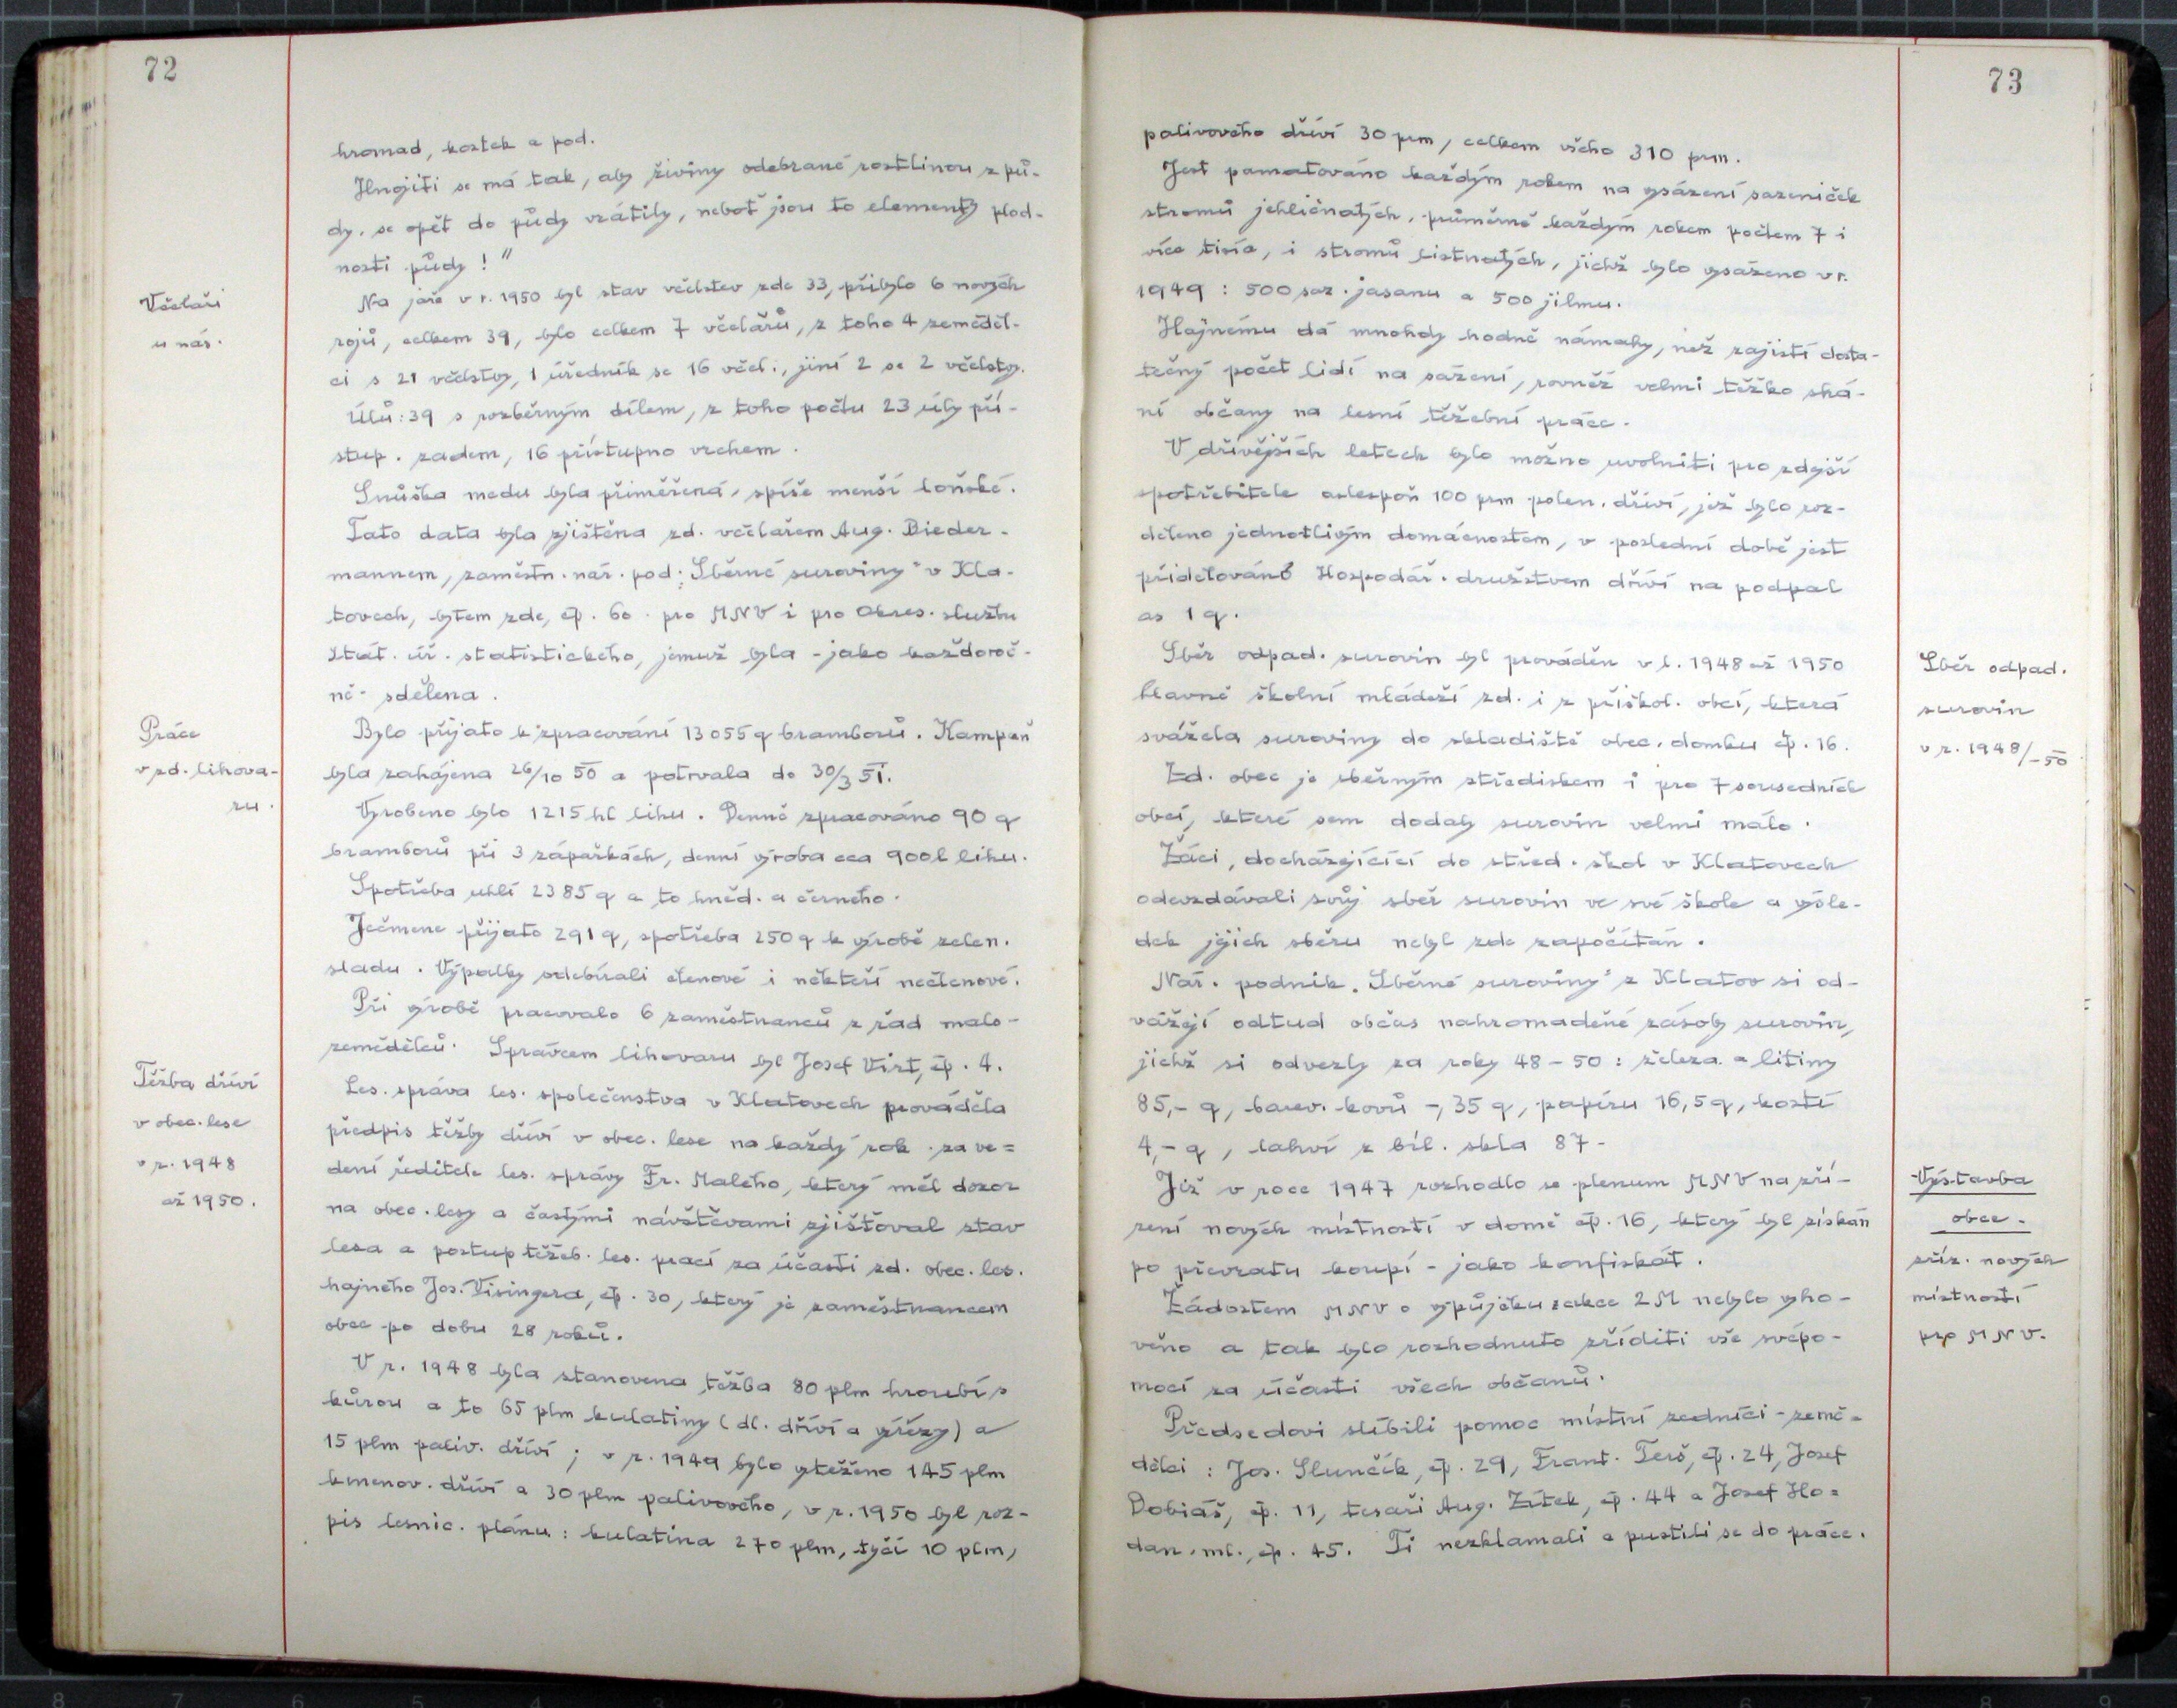 72
hromad, kostek a pod.
Hnojiti se má tak, aby živiny odebrané rostlinou z pů-
dy, se opět do půdy vrátily, neboť jsou to elementy plod-
nosti půdy!"
Včelaři
u nás.
Na jaře v r. 1950 byl stav včelstev zde 33, přibylo 6 nových
rojů, celkem 39, bylo celkem 7 včelařů, z toho 4 zeměděl-
ci s 21 včelstvy, 1 úředník se 16 včel., jiní 2 se 2 včelstvy.
Úlů: 39 s rozběrným dílem, z toho počtu 23 úly pří-
stup. zadem, 16 přístupno vrchem.
Snůška medu byla přiměřená, spíše menší loňské.
Tato data byla zjištěna zd. včelařem Aug. Bieder-
mannem, zaměstn. nár. pod. „Sběrné suroviny" v Kla-
tovech, bytem zde, čp. 60 pro MNV i pro Okres. službu
Stát. úř. statistického, jemuž byla - jako každoroč-
ně - sdělena.
Práce
v zd. lihova-
ru.
Bylo přijato k zpracování 13055 q bramborů. Kampaň
byla zahájena 26/10 50 a potrvala do 30/3 51.
Vyrobeno bylo 1215 hl lihu. Denně zpracováno 90 q
bramborů při 3 zápařkách, denní výroba cca 900 l lihu.
Spotřeba uhlí 2385 q a to hněd. a černého.
Ječmene přijato 291 q, spotřeba 250 q k výrobě zelen.
sladu. Výpalky odebírali členové i někteří nečlenové.
Při výrobě pracovalo 6 zaměstnanců z řad malo-
zemědělců. Správcem lihovaru byl Josef Virt, čp. 4.
Těžba dříví
v obec. lese
v r. 1948
až 1950.
Les. správa les. společenstva v Klatovech prováděla
předpis těžby dříví v obec. lese na každý rok za ve=
dení ředitele les. správy Fr. Malého, který měl dozor
na obec. lesy a častými návštěvami zjišťoval stav
lesa a postup těžeb. les. prací za účasti zd. obec. les.
hajného Jos. Visingera, čp. 30, který je zaměstnancem
obce po dobu 28 roků.
V r. 1948 byla stanovena těžba 80 plm hroubí s
kůrou a to 65 plm kulatiny (dl. dříví a výřezy) a
15 plm paliv. dříví; v r. 1949 bylo vytěženo 145 plm
kmenov. dříví a 30 plm palivového, v r. 1950 byl roz-
pis lesnic. plánu: kulatina 270 plm, tyčí 10 plm,
73
palivového dříví 30 prm, celkem všeho 310 prm.
Jest pamatováno každým rokem na vysázení sazeniček
stromů jehličnatých, průměrně každým rokem počtem 7 i
více tisíc, i stromů listnatých, jichž bylo vysázeno v r.
1949: 500 saz. jasanu a 500 jilmu.
Hajnému dá mnohdy hodně námahy, než zajistí dosta-
tečný počet lidí na sázení, rovněž velmi těžko shá-
ní občany na lesní těžební práce.
V dřívějších letech bylo možno uvolniti pro zdejší
spotřebitele aslespoň 100 prm polen. dříví, jež bylo roz-
děleno jednotlivým domácnostem, v poslední době jest
přidělováno Hospodář. družstvem dříví na podpal
as 1 q.
Sběr odpad.
surovin
v r. 1948/-50
Sběr odpad. surovin byl prováděn v l. 1948 až 1950
hlavně školní mládeží zd. i z přiškol. obcí, která
svážela suroviny do skladiště obec. domku čp. 16.
Zd. obec je sběrným střediskem i pro 7 sousedních
obcí, které sem dodaly surovin velmi málo.
Žáci, docházející do střed. škol v Klatovech
odevzdávali svůj sběr surovin ve své škole a výsle-
dek jejich sběru nebyl zde započítán.
Nár. podnik „Sběrné suroviny" z Klatov si od-
vážejí odtud občas nahromaděné zásoby surovin,
jichž si odvezly za roky 48-50: železa a litiny
85,- q, barev. kovů -,35 q, papíru 16,5 q, kostí
4,- q, lahví z bíl. skla 87-
Výstavba
obce.
zříz. nových
místností
pro MNV.
Již v roce 1947 rozhodlo se plenum MNV na zří-
zení nových místností v domě čp. 16, který byl získán
po převratu koupí - jako konfiskát.
Žádostem MNV o výpůjčku z akce 2M nebylo vyho-
věno a tak bylo rozhodnuto zříditi vše svépo-
mocí za účasti všech občanů.
Předsedovi slíbili pomoc místní zedníci - země=
dělci: Jos. Slunčík, čp. 29, Frant. Terš, čp. 24, Josef
Dobiáš, čp. 11, tesaři Aug. Zítek, čp. 44 a Josef Ho=
dan. ml., čp. 45. Ti nezklamali a pustili se do práce.